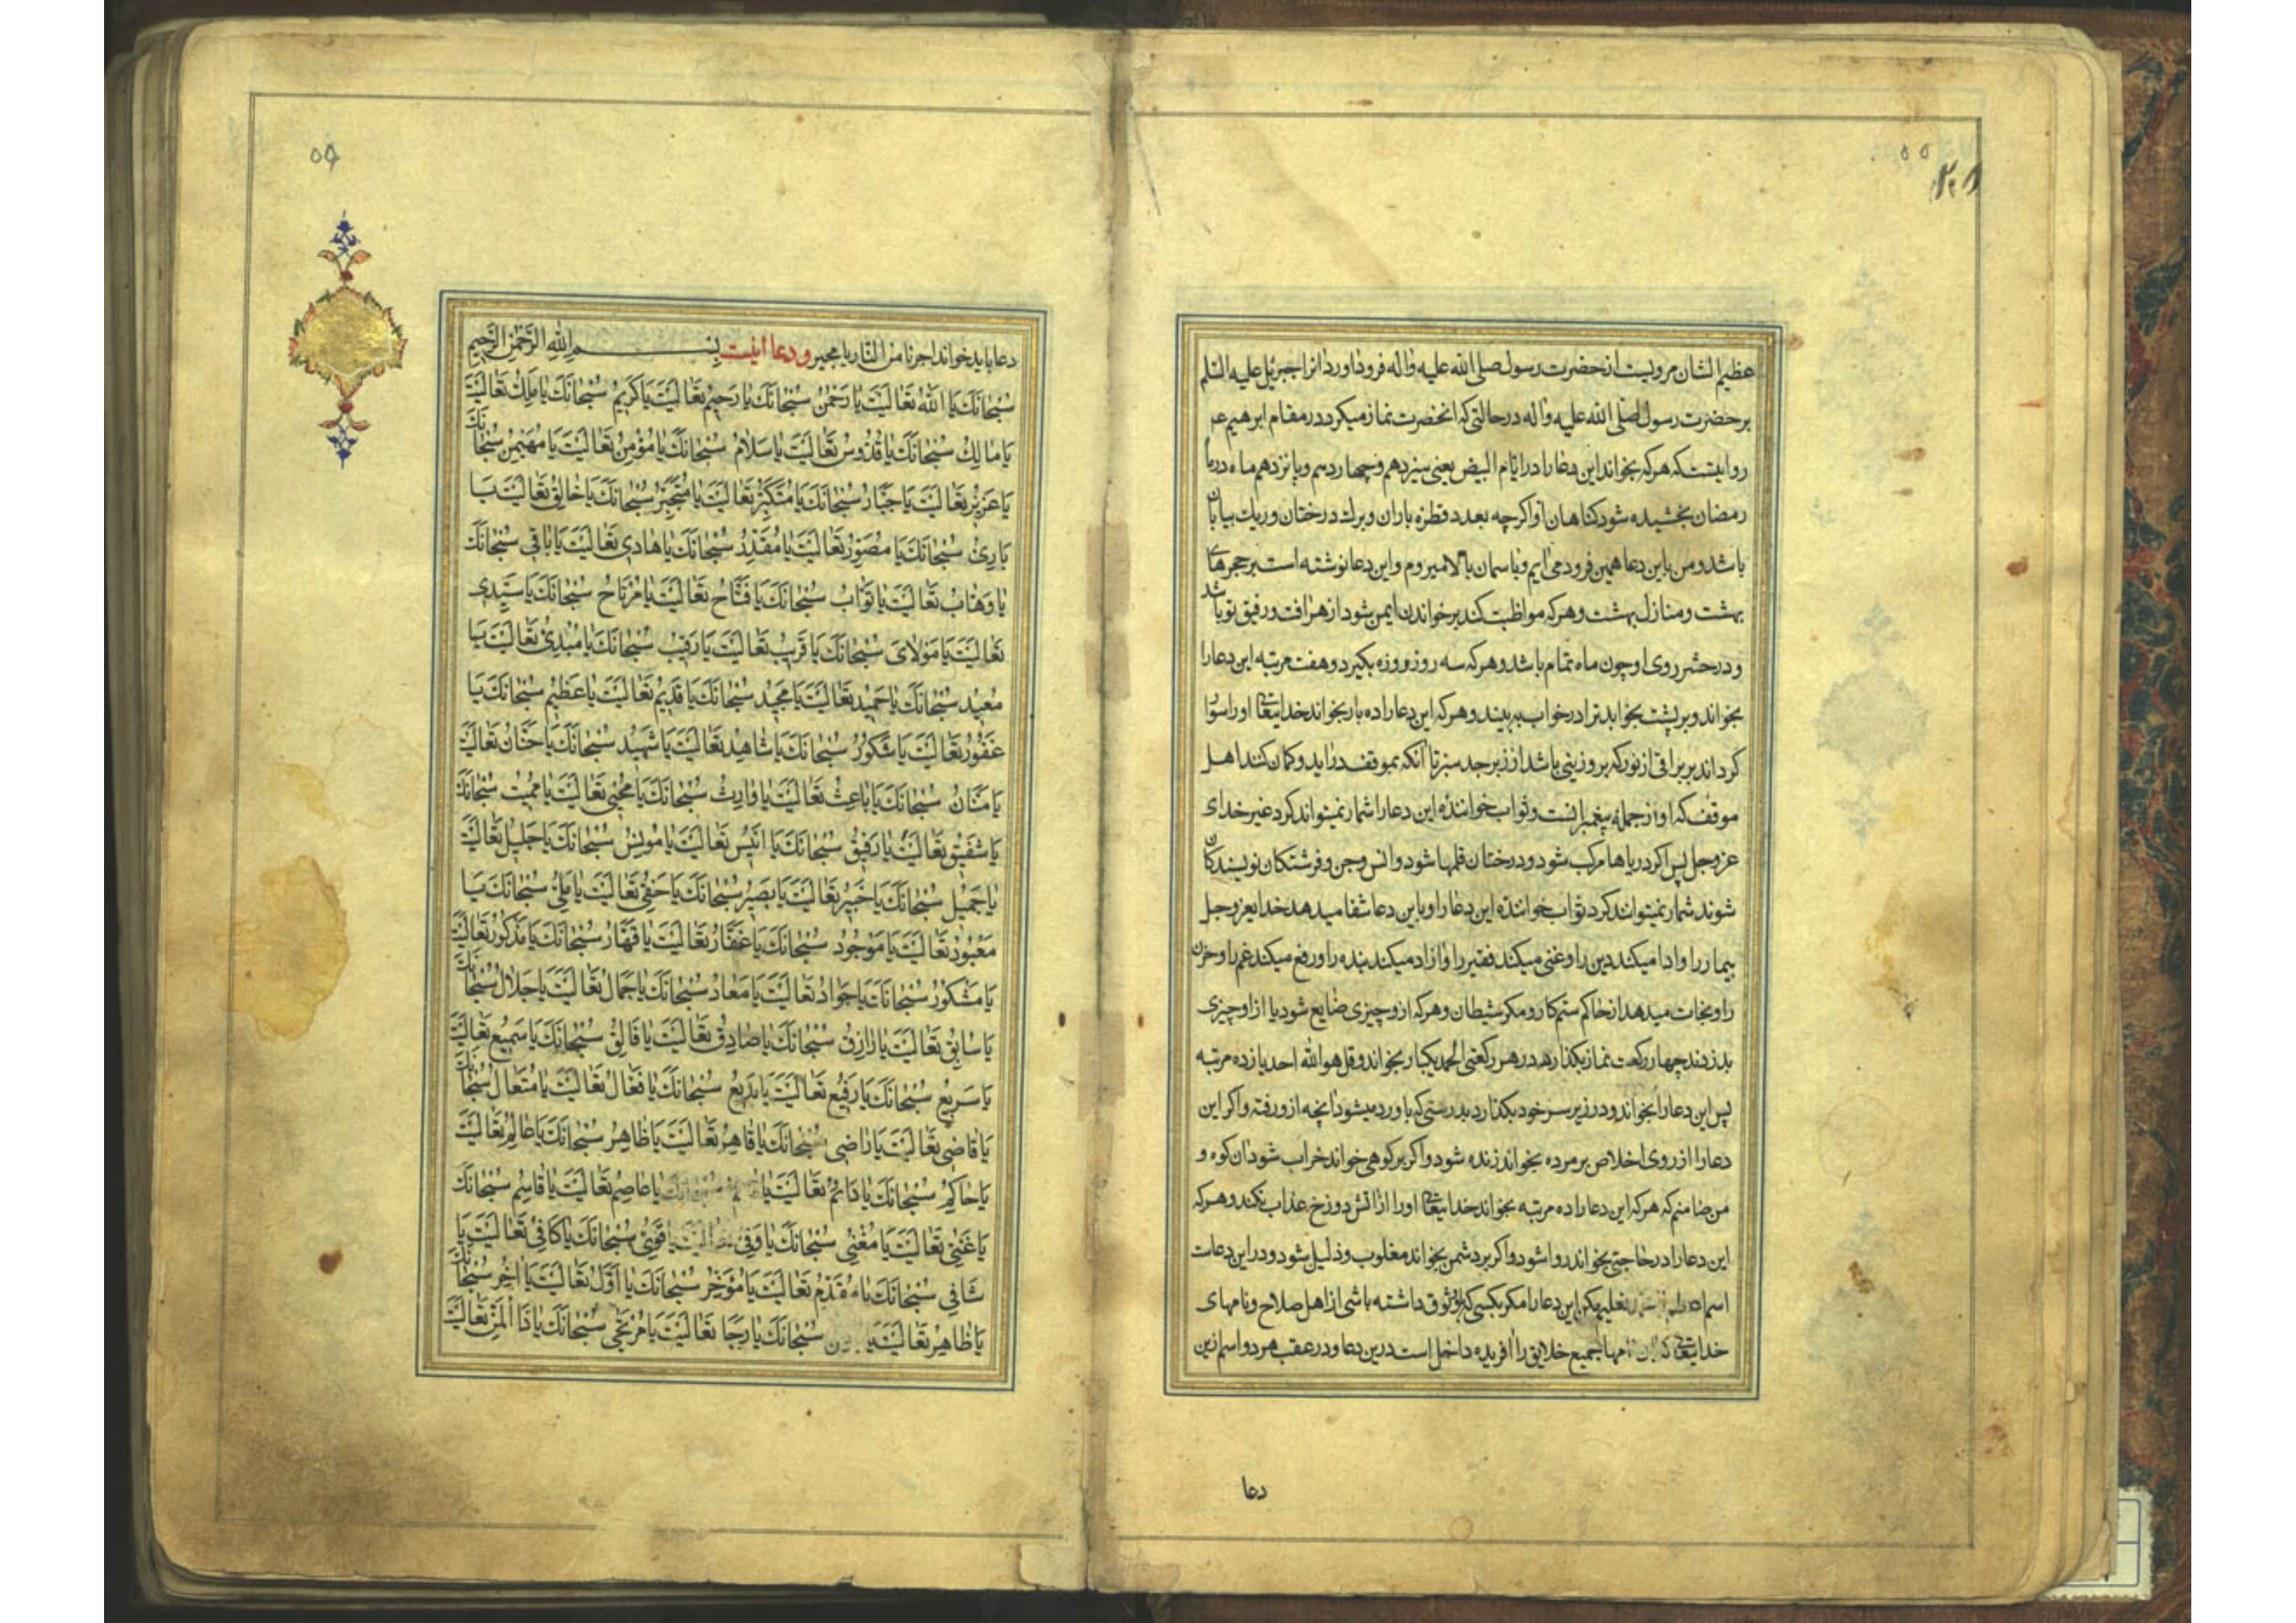 ۵۵
۲۰۸
عظیم الشان مرویست از حضرت رسول صلی الله علیه واله فرود اورد انرا جبرئیل علیه السلم
بر حضرت رسول صلی الله علیه واله در حالتی که انحضرت نماز میکرد در مقام ابرهیم عم
روایتست که هرکه بخواند این دعا را در ایام البیض یعنی سیزدهم و چهاردهم و پانزدهم ماه درماه
رمضان بخشیده شود کناهان او اکرچه بعدد قطره باران و برك درختان و ریك بیابان
باشد ومن باین دعا همین فرود می ایم و باسمان بالا میروم واین دعا نوشته است بر حجرهای
بهشت و منازل بهشت وهرکه مواظبت کند بر خواندن ایمن شود از هر افت ورفیق تو باشد
و در حشر روی او چون ماه تمام باشد وهرکه سه روز روزه بکیرد و هفت مرتبه این دعا را
بخواند و بر پشت بخوابد ترا در خواب به بیند و هرکه این دعا را ده بار بخواند خدایتعالی او را سوار
کرداند بر براقی از نور که بر و زینی باشد از زبرجد سبز تا انکه بموقف در اید و کمان کنند اهل
موقف که او از جمله پیغمبرانست و ثواب خواننده این دعا را شمار نمیتواند کرد غیر خدای
عزوجل پس اکر دریاها مرکب شود و درختان قلمها شود و انس وجن و فرشتکان نویسندکان
شوند شمار نمیتوانند کرد ثواب خواننده این دعا را و باین دعا شفا میدهد خدایعزوجل
بیمار را و ادا میکند دین را و غنی میکند فقیر را و ازاد میکند بنده را و رفع میکند غم را و حزن
را و نجات میدهد از حاکم ستمکار و مکر شیطان وهرکه ازو چیزی ضایع شود یا از او چیزی
بدزدند چهار رکعت نماز بکذارد در هر رکعتی الحمد یکبار بخواند و قل هو الله احد یازده مرتبه
پس این دعا را بخواند و در زیر سر خود بکذارد بدرستی که باو رد میشود انچه ازو رفته و اکر این
دعا را از روی اخلاص بر مرده بخواند زنده شود و اکر بر کوهی خواند خراب شود ان کوه و
من ضامنم که هرکه این دعا را ده مرتبه بخواند خدایتعالی او را از اتش دوزخ عذاب نکند و هرکه
این دعا را در حاجتی بخواند روا شود و اکر بر دشمن بخواند مغلوب و ذلیل شود و در این دعاست
اسم اعظم تعلیم مکن این دعا را مکر بکسی که باو وثوق داشته باشی از اهل صلاح و نامهای
خدایتعالی که بان نامها جمیع خلایق را افریده داخل است درین دعا و در عقب هر دو اسم ازین
دعا
۵۶
دعا باید خواند اجرنا من النار یا مجیر و دعا اینست بِسْمِ اللهِ الرَّحْمٰنِ الرَّحِیمِ
سُبْحَانَكَ یَا اَللهُ تَعَالَیْتَ یَا رَحْمٰنُ سُبْحَانَكَ یَا رَحِیمُ تَعَالَیْتَ یَا كَرِیمُ سُبْحَانَكَ یَا مَلِكُ تَعَالَیْتَ
یَا مَالِكُ سُبْحَانَكَ یَا قُدُّوسُ تَعَالَیْتَ یَا سَلَامُ سُبْحَانَكَ یَا مُؤْمِنُ تَعَالَیْتَ یَا مُهَیْمِنُ سُبْحَانَكَ
یَا عَزِیزُ تَعَالَیْتَ یَا جَبَّارُ سُبْحَانَكَ یَا مُتَكَبِّرُ تَعَالَیْتَ یَا مُتَجَبِّرُ سُبْحَانَكَ یَا خَالِقُ تَعَالَیْتَ یَا
بَارِئُ سُبْحَانَكَ یَا مُصَوِّرُ تَعَالَیْتَ یَا مُقَدِّرُ سُبْحَانَكَ یَا هَادِی تَعَالَیْتَ یَا بَاقِی سُبْحَانَكَ
یَا وَهَّابُ تَعَالَیْتَ یَا تَوَّابُ سُبْحَانَكَ یَا فَتَّاحُ تَعَالَیْتَ یَا مُرْتَاحُ سُبْحَانَكَ یَا سَیِّدِی
تَعَالَیْتَ یَا مَوْلَایَ سُبْحَانَكَ یَا قَرِیبُ تَعَالَیْتَ یَا رَقِیبُ سُبْحَانَكَ یَا مُبْدِئُ تَعَالَیْتَ یَا
مُعِیدُ سُبْحَانَكَ یَا حَمِیدُ تَعَالَیْتَ یَا مَجِیدُ سُبْحَانَكَ یَا قَدِیمُ تَعَالَیْتَ یَا عَظِیمُ سُبْحَانَكَ یَا
غَفُورُ تَعَالَیْتَ یَا شَكُورُ سُبْحَانَكَ یَا شَاهِدُ تَعَالَیْتَ یَا شَهِیدُ سُبْحَانَكَ یَا حَنَّانُ تَعَالَیْتَ
یَا مَنَّانُ سُبْحَانَكَ یَا بَاعِثُ تَعَالَیْتَ یَا وَارِثُ سُبْحَانَكَ یَا مُحْیِی تَعَالَیْتَ یَا مُمِیتُ سُبْحَانَكَ
یَا شَفِیقُ تَعَالَیْتَ یَا رَفِیقُ سُبْحَانَكَ یَا اَنِیسُ تَعَالَیْتَ یَا مُونِسُ سُبْحَانَكَ یَا جَلِیلُ تَعَالَیْتَ
یَا جَمِیلُ سُبْحَانَكَ یَا خَبِیرُ تَعَالَیْتَ یَا بَصِیرُ سُبْحَانَكَ یَا حَفِیُّ تَعَالَیْتَ یَا مَلِیُّ سُبْحَانَكَ یَا
مَعْبُودُ تَعَالَیْتَ یَا مَوْجُودُ سُبْحَانَكَ یَا غَفَّارُ تَعَالَیْتَ یَا قَهَّارُ سُبْحَانَكَ یَا مَذْكُورُ تَعَالَیْتَ
یَا مَشْكُورُ سُبْحَانَكَ یَا جَوَادُ تَعَالَیْتَ یَا مَعَادُ سُبْحَانَكَ یَا جَمَالُ تَعَالَیْتَ یَا جَلَالُ سُبْحَانَكَ
یَا سَابِقُ تَعَالَیْتَ یَا رَازِقُ سُبْحَانَكَ یَا صَادِقُ تَعَالَیْتَ یَا فَالِقُ سُبْحَانَكَ یَا سَمِیعُ تَعَالَیْتَ
یَا سَرِیعُ سُبْحَانَكَ یَا رَفِیعُ تَعَالَیْتَ یَا بَدِیعُ سُبْحَانَكَ یَا فَعَّالُ تَعَالَیْتَ یَا مُتَعَالُ سُبْحَانَكَ
یَا قَاضِی تَعَالَیْتَ یَا رَاضِی سُبْحَانَكَ یَا قَاهِرُ تَعَالَیْتَ یَا ظَاهِرُ سُبْحَانَكَ یَا عَالِمُ تَعَالَیْتَ
یَا حَاكِمُ سُبْحَانَكَ یَا دَائِمُ تَعَالَیْتَ یَا سُبْحَانَكَ یَا عَاصِمُ تَعَالَیْتَ یَا قَاسِمُ سُبْحَانَكَ
یَا غَنِیُّ تَعَالَیْتَ یَا مُغْنِی سُبْحَانَكَ یَا وَفِیُّ تَعَالَیْتَ یَا قَوِیُّ سُبْحَانَكَ یَا كَافِی تَعَالَیْتَ یَا
شَافِی سُبْحَانَكَ یَا مُقَدِّمُ تَعَالَیْتَ یَا مُؤَخِّرُ سُبْحَانَكَ یَا اَوَّلُ تَعَالَیْتَ یَا اٰخِرُ سُبْحَانَكَ
یَا ظَاهِرُ تَعَالَیْتَ یَا سُبْحَانَكَ یَا رَجَا تَعَالَیْتَ یَا مُرْتَجَی سُبْحَانَكَ یَا ذَا الْمَنِّ تَعَالَیْتَ